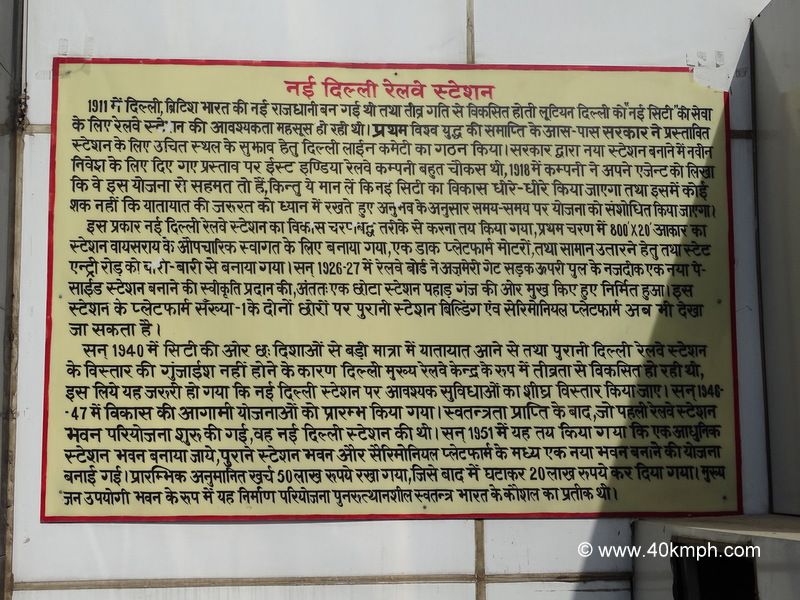 नई दिल्ली रेलवे स्टेशन
1911 में दिल्ली, ब्रिटिश भारत की नई राजधानी बन गई थी तथा तीव्र गति से विकसित होती लूटियन दिल्ली को "नई सिटी" की सेवा
के लिए रेलवे स्टेशन की आवश्यकता महसूस हो रही थी। प्रथम विश्व युद्ध की समाप्ति के आस-पास सरकार ने प्रस्तावित
स्टेशन के लिए उचित स्थल के सुझाव हेतु दिल्ली लाईन कमेटी का गठन किया। सरकार द्वारा नया स्टेशन बनाने में नवीन
निवेश के लिए दिए गए प्रस्ताव पर ईस्ट इण्डिया रेलवे कम्पनी बहुत चौकस थी, 1918 में कम्पनी ने अपने एजेन्ट को लिखा
कि वे इस योजना से सहमत तो हैं, किन्तु ये मान लें कि नई सिटी का विकास धीरे-धीरे किया जाएगा तथा इसमें कोई
शक नहीं कि यातायात की जरूरत को ध्यान में रखते हुए अनुभव के अनुसार समय-समय पर योजना को संशोधित किया जाएगा।
इस प्रकार नई दिल्ली रेलवे स्टेशन का विकास चरणबद्ध तरीके से करना तय किया गया, प्रथम चरण में 800'X20' आकार का
स्टेशन वायसराय के औपचारिक स्वागत के लिए बनाया गया, एक डाक प्लेटफार्म मोटरों, तथा सामान उतारने हेतु तथा स्टेट
एन्ट्री रोड़ को बारी-बारी से बनाया गया। सन् 1926-27 में रेलवे बोर्ड ने अजमेरी गेट सड़क ऊपरी पुल के नजदीक एक नया पे-
साईड स्टेशन बनाने की स्वीकृति प्रदान की, अंततः एक छोटा स्टेशन पहाड़ गंज की ओर मुख किए हुए निर्मित हुआ। इस
स्टेशन के प्लेटफार्म सँख्या-1 के दोनों छोरों पर पुरानी स्टेशन बिल्डिंग एंव सेरिमोनियल प्लेटफार्म अब भी देखा
जा सकता है।
सन् 1940 में सिटी की ओर छः दिशाओं से बड़ी मात्रा में यातायात आने से तथा पुरानी दिल्ली रेलवे स्टेशन
के विस्तार की गुंजाईश नहीं होने के कारण दिल्ली मुख्य रेलवे केन्द्र के रूप में तीव्रता से विकसित हो रही थी,
इस लिये यह जरूरी हो गया कि नई दिल्ली स्टेशन पर आवश्यक सुविधाओं का शीघ्र विस्तार किया जाए। सन् 1946-
-47 में विकास की आगामी योजनाओं को प्रारम्भ किया गया। स्वतन्त्रता प्राप्ति के बाद, जो पहली रेलवे स्टेशन
भवन परियोजना शुरू की गई, वह नई दिल्ली स्टेशन की थी। सन् 1951 में यह तय किया गया कि एक आधुनिक
स्टेशन भवन बनाया जाये, पुराने स्टेशन भवन और सेरिमोनियल प्लेटफार्म के मध्य एक नया भवन बनाने की योजना
बनाई गई। प्रारम्भिक अनुमानित खर्च 50 लाख रुपये रखा गया, जिसे बाद में घटाकर 20 लाख रुपये कर दिया गया। मुख्य
जन उपयोगी भवन के रूप में यह निर्माण परियोजना पुनरूत्थानशील स्वतन्त्र भारत के कौशल का प्रतीक थी।
© www.40kmph.com